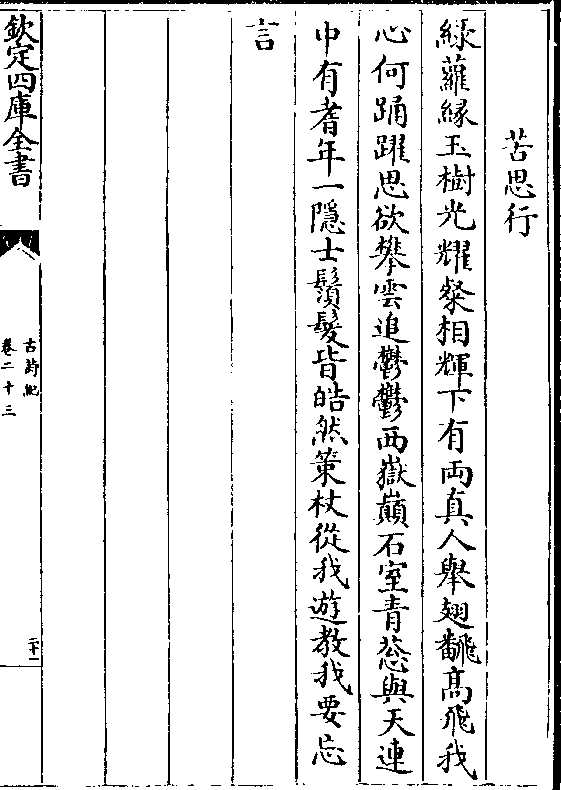 苦思行
緑蘿縁玉樹光耀粲相輝下有兩真人舉翅翻髙飛我
心何踊躍思欲攀雲追鬱鬱西嶽巔石室青葱與天連
中有耆年一隱士鬚髮皆皓然策杖從我遊教我要忘
言
欽定四庫全書
古詩紀
卷二十三
二十一